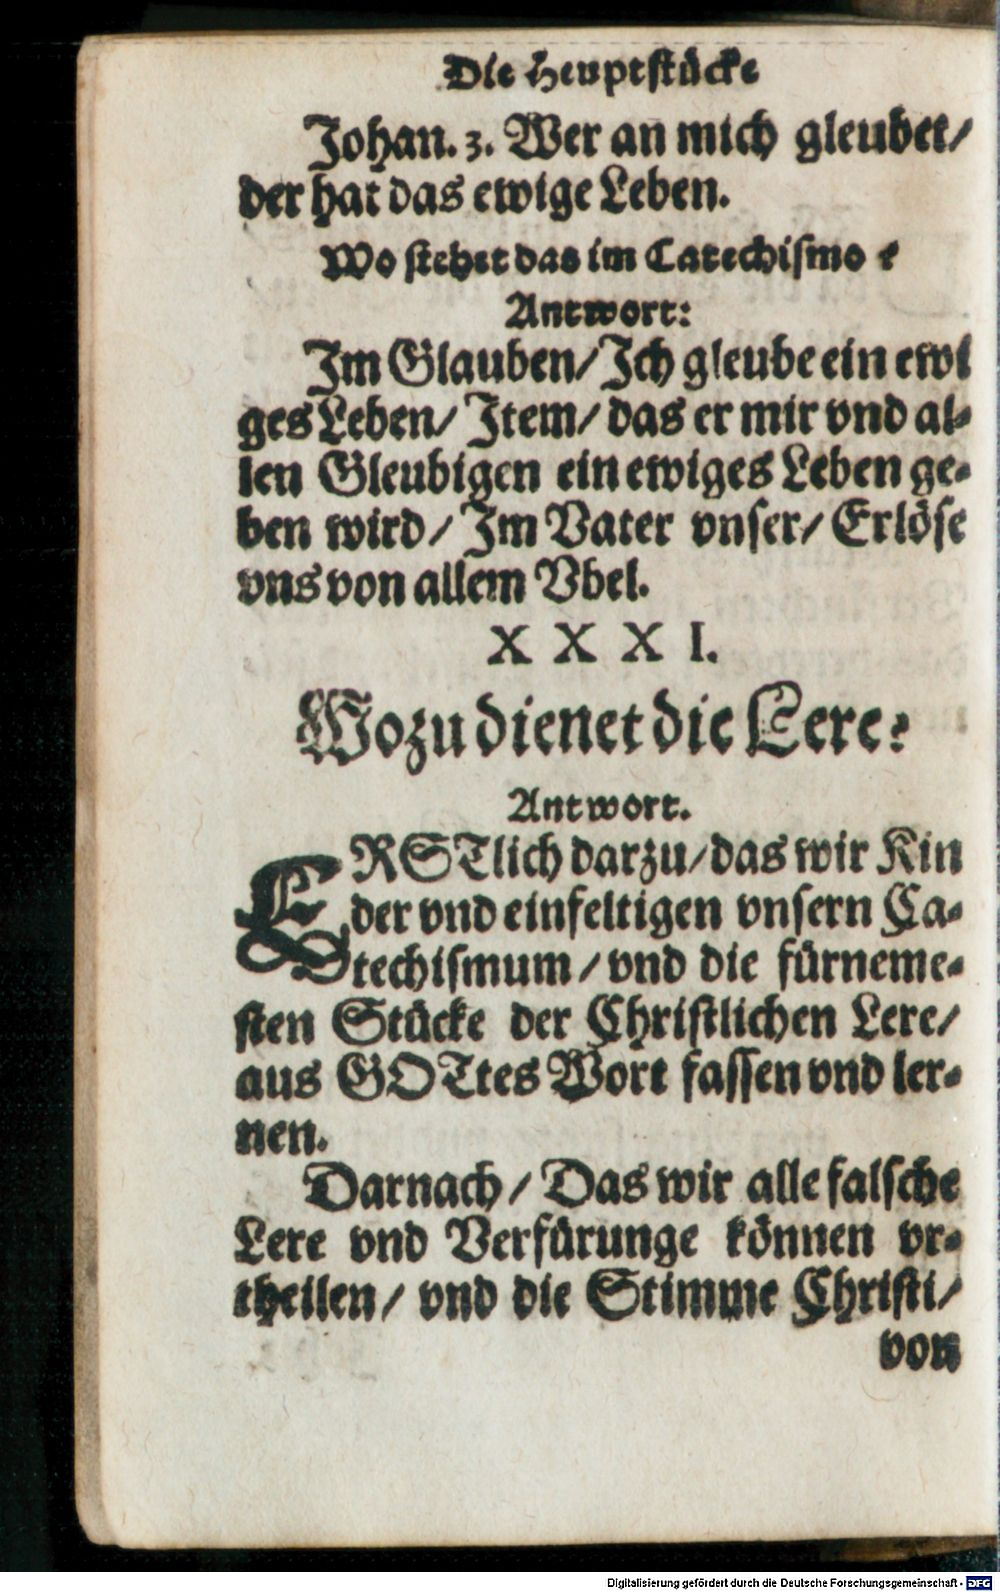 Die Heuptstücke
Johan. 3. Wer an mich gleubet/
der hat das ewige Leben.
Wo stehet das im Catechismo?
Antwort:
Im Glauben/ Ich gleube ein ewi
ges Leben/ Item/ das er mir vnd al-
len Gleubigen ein ewiges Leben ge-
ben wird/ Im Vater vnser/ Erlöse
vns von allem Vbel.
XXXI.
Wozu dienet die Lere?
Antwort.
ERSTlich darzu/ das wir Kin
der vnd einfeltigen vnsern Ca-
techismum/ vnd die fürneme-
sten Stücke der Christlichen Lere/
aus GOTtes Wort fassen vnd ler-
nen.
Darnach/ Das wir alle falsche
Lere vnd Verfürunge können vr-
theilen/ vnd die Stimme Christi/
von
Digitalisierung gefördert durch die Deutsche Forschungsgemeinschaft - DFG